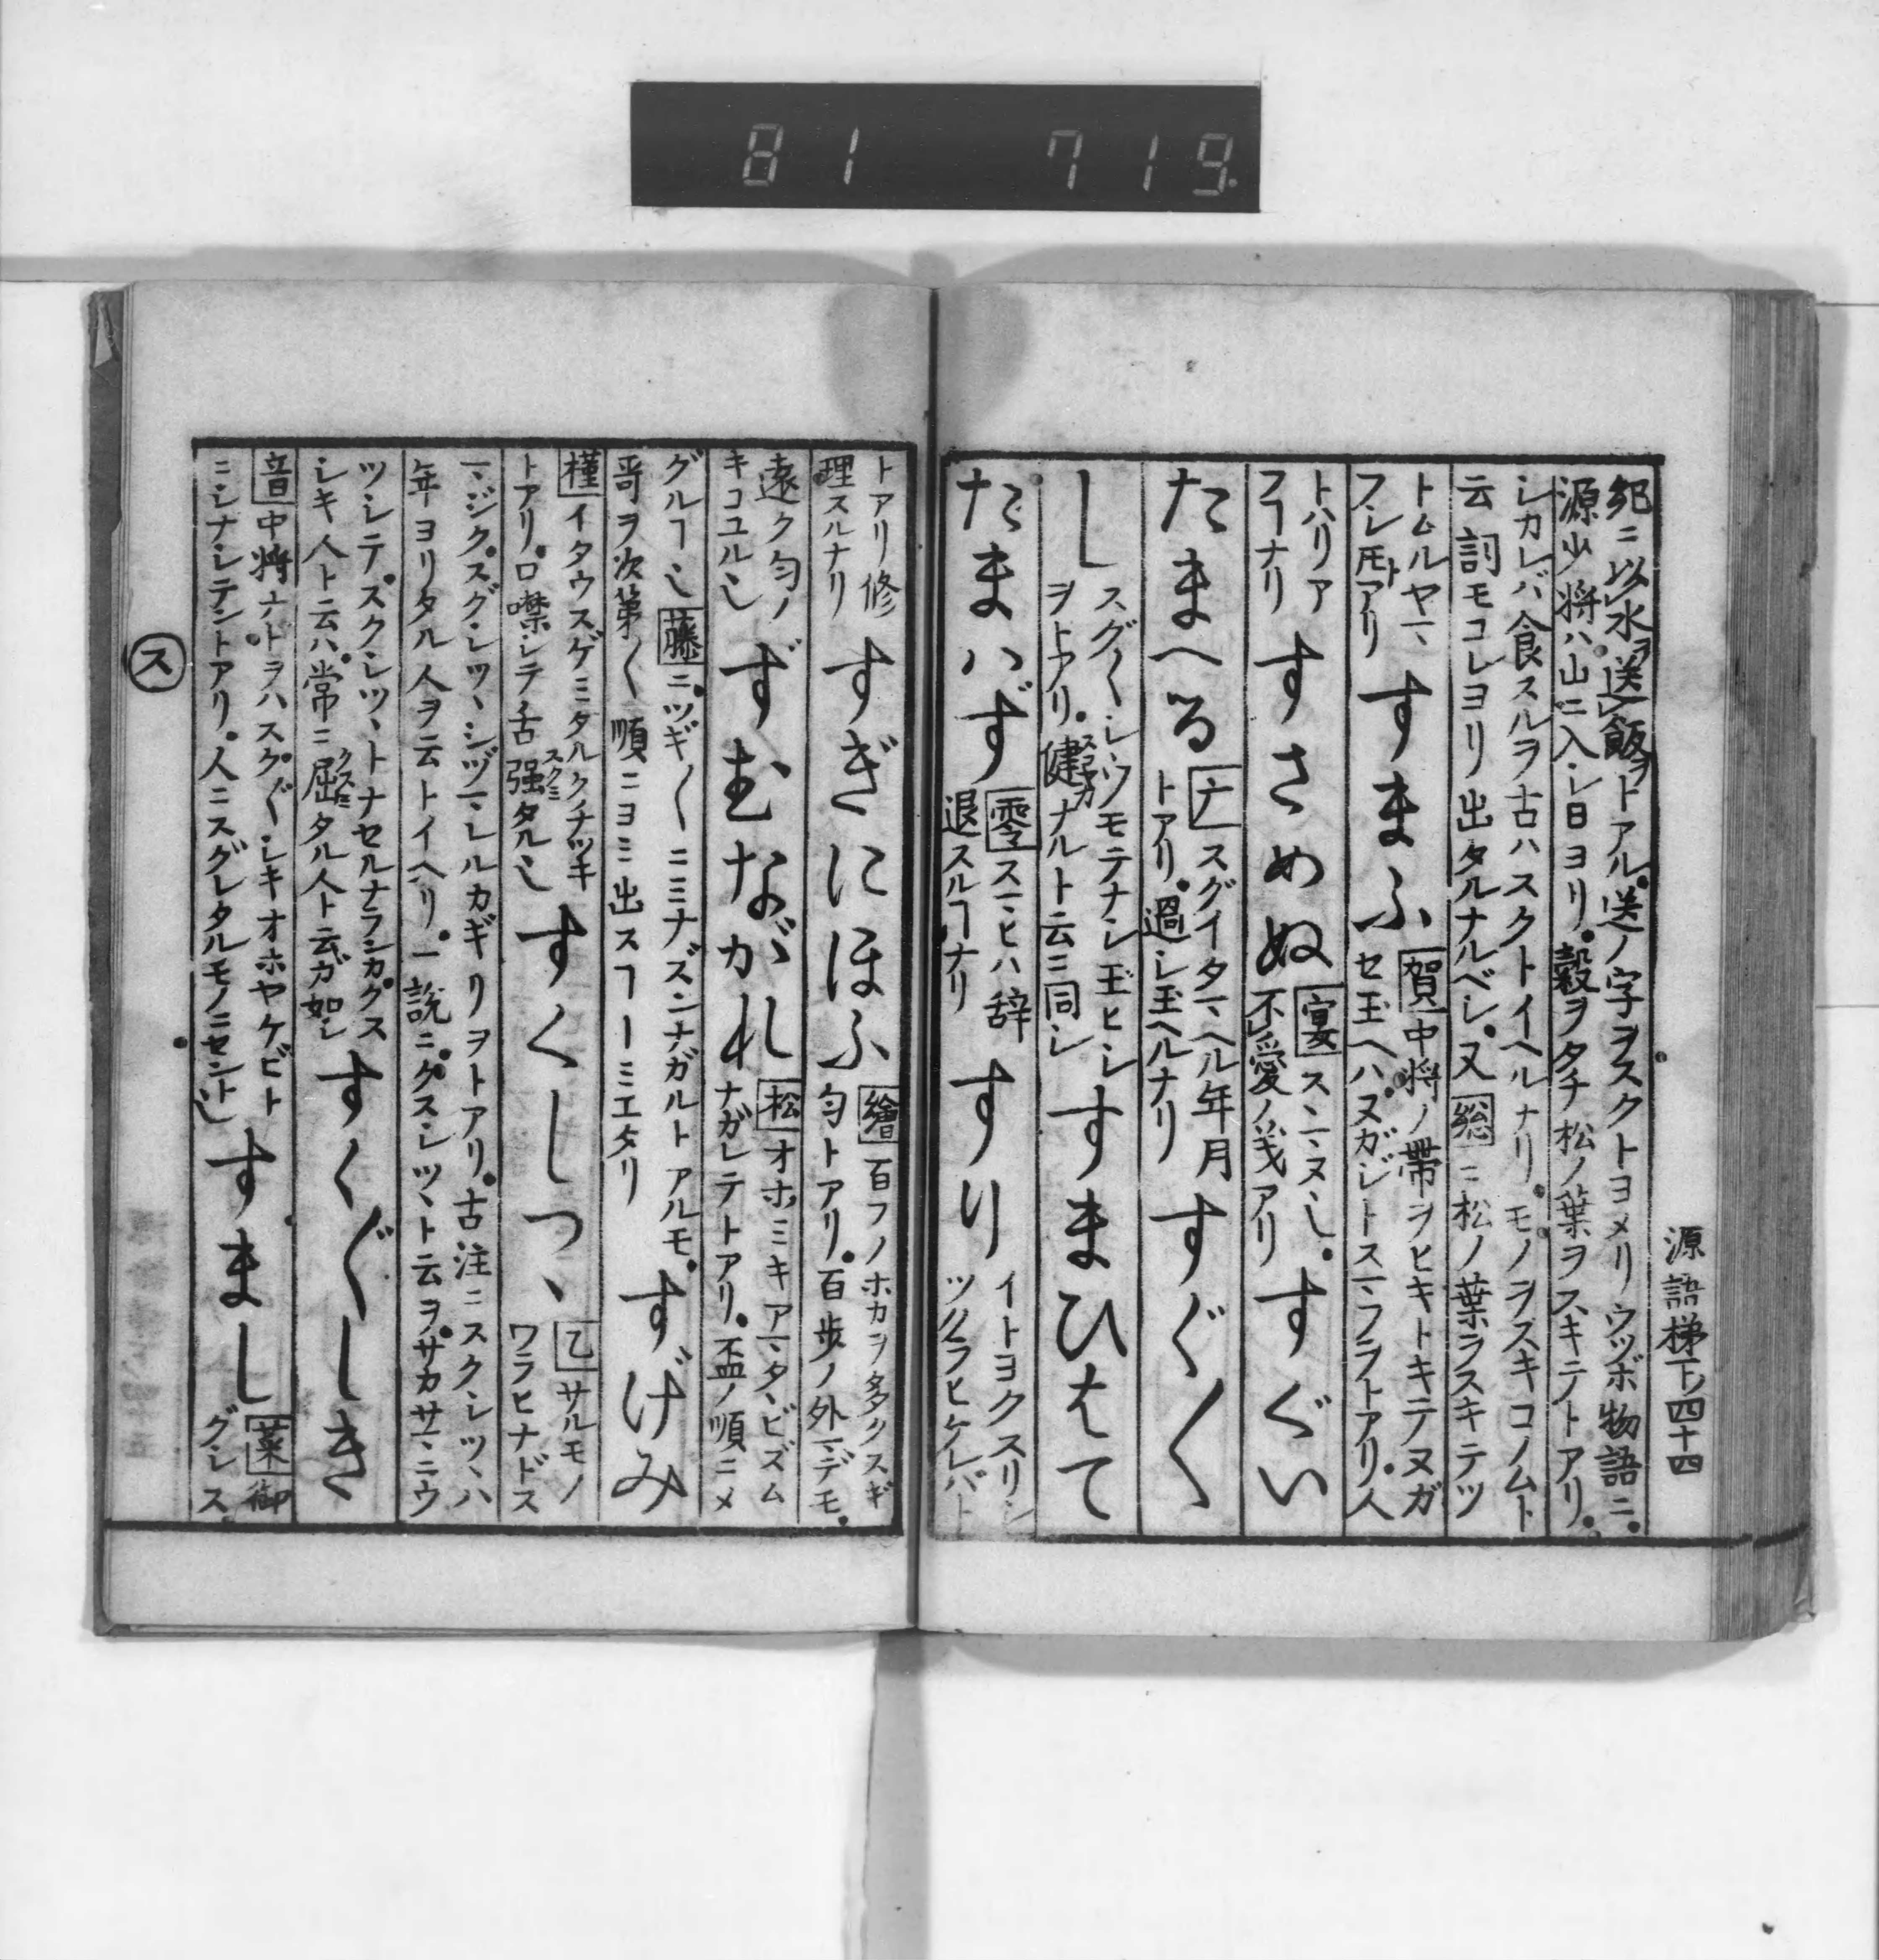 81 719
源語梯下ノ四十四
紀ニ以水ヲ送飯ヲトアル。送ノ字ヲスクトヨメリウツボ物語ニ。
源少将ハ山ニ入シ日ヨリ。穀ヲタチ松ノ葉ヲスキテトアリ。
シカレバ食スルヲ古ハスクトイヘルナリ。モノヲスキコノムト
云詞モコレヨリ出タルナルベシ。又総ニ松ノ葉ヲスキテツ
トムルヤマヽ
フシ𪜈アリ
すまふ
賀中将ノ帯ヲヒキトキテヌガ
セ玉ヘハ。ヌガジトスマフヲトアリ。人
トハリア
フヿナリ
すさめぬ
宴スニヽヌ𬼀。
不愛ノ義アリ
すぐい
たまへる
ナスグイタマヘル年月
トアリ。過シ玉ヘルナリ
すぐ〱
し
スグ〱シウモテナシ玉ヒシ
ヲトアリ。健スコヤカナルト云ニ同シ
すまひはて
たまハず
零スマヒハ辞
退スルヿナリ
すり
イトヨクスリシ
ツクラヒケレバト
トアリ修
理スルナリ
すぎにほふ
繪百フノホカヲ多クスギ
匂トアリ。百歩ノ外マデモ。
遠ク匂ノ
キコユル𬼀
ずむながれ
松オホミキアマタヽビズム
ナガレテトアリ。盃ノ順ニメ
グルヿ𬼀藤ニ。ツギ〱ニミナズンナガルトアルモ。
哥ヲ次第〱順ニヨミ出スヿーミエタリ
すげみ
槿イタウスゲミタルクチツキ
トアリ。口噤シテ舌强スクミタル𬼀
すくしつヽ
乙サルモノ
ワラヒナドス
マジク。スグシツヽシヅマレルカギリヲトアリ。古注ニスクシツヽハ
年ヨリタル人ヲ云トイヘリ。一説ニ。クスシツヽト云ヲ。サカサマニウ
ツシテ。スクシツヽトナセルナラシカ。クス
シキ人ト云ハ。常ニ屈クスミタル人ト云ガ如シ
すくぐしき
音中将ナドヲハスク〲シキオホヤケビト
ニシナシテントアリ。人ニスグレタルモノニセント𬼀
すまし
菜御
グシス
ス